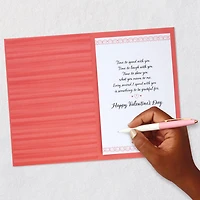 Time to spend with you
Time to laugh with you
Time to show you
what you mean to me
Every second I spend with you
is something to be grateful for.
Happy Valentine's Day